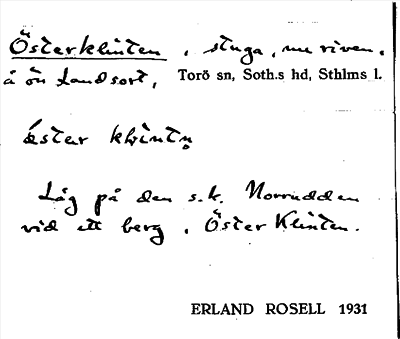 Österklinten, stuga, nu riven,
å ön Landsort, Torö sn, Soth.s hd, Sthlms l.
Låg på den s.k. Norrudden
vid ett berg, Öster Klinten.
ERLAND ROSELL 1931